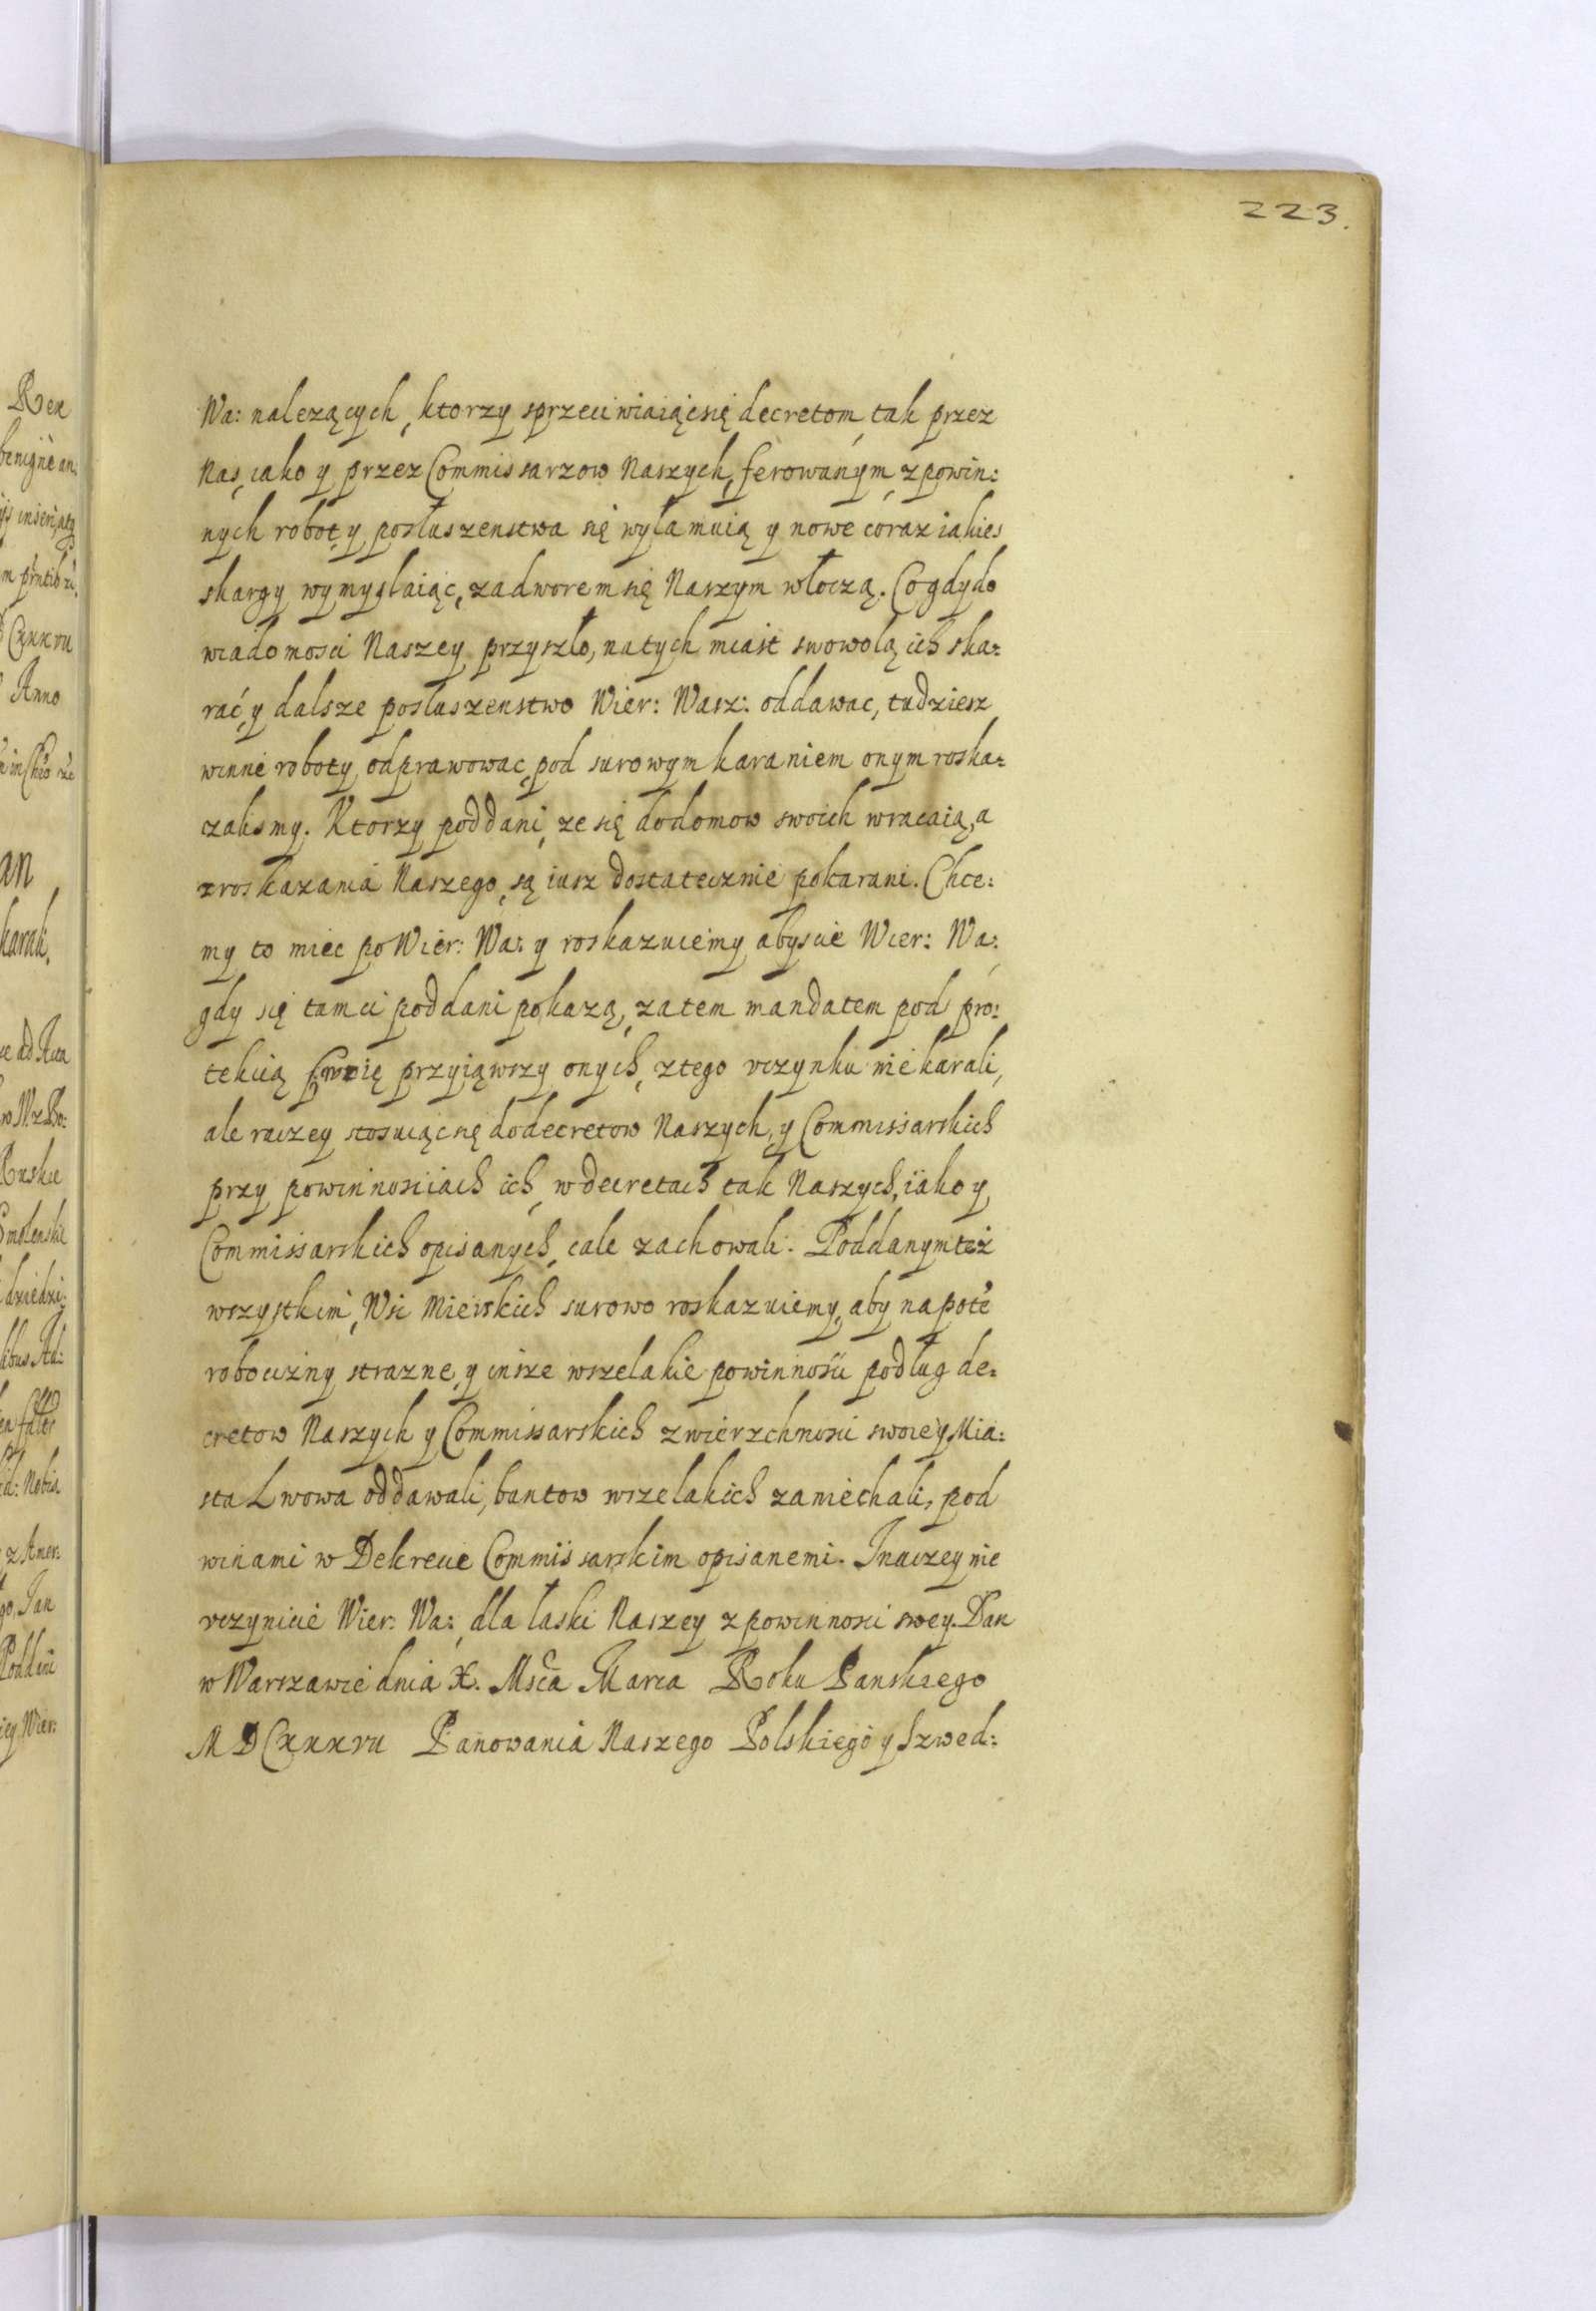 223.
Wa: nalezących, ktorzy sprzeciwiaiącsię decretom, tak przez
Nas, iako y przez Commissarzow Naszych, ferowanym, z powin:
nych robot, y posłuszenstwa się wyłamuią y nowe coraz iakies
skargy wymyslaiąc, zadworem się Naszym włoczą. Co gdy do
wiadomosci Naszey przyszło, natych miast swowolą ich ska:
rać, y dalsze posłuszenstwo Wier: Wasz: oddawac, tudziesz
winne roboty, odprawowac, pod surowym karaniem onym roska:
zalismy. Ktorzy poddani, ze się dodomow swoich wracaią, a
zroskazania Naszego, są iusz dostatecznie pokarani. Chce:
my to miec po Wier: Wa: y roskazuiemy abyscie Wier: Wa:
gdy się tamci poddani pokazą, zatem mandatem pod pro:
tekcią przyiąwszy onych, ztego vczynku nie karali,
ale raczey stosuiącsię dodecretow Naszych, y Commissarskich
przy powinnosciach ich, w decretach tak Naszych, iako y
Commissarskich opisanych, cale zachowali. Poddanym tez
wszystkim, Wsi Mieiskich surowo roskazuiemy, aby napotē
robocizny strazne, y insze wszelakie powinnosci podług de:
cretow Naszych y Commissarskich zwierzchnosci swoiey Mia:
sta Lwowa oddawali, buntow wszelakich zaniechali, pod
winami w Dekrecie Commissarskim opisanemi. Inaczey nie
vczynicie Wier: Wa: dla łaski Naszey z powinnosci swey. Dan
w Warszawie dnia X. Msca Marca Roku Panskiego
MDCxxxvii Panowania Naszego Polskiego y Szwed: